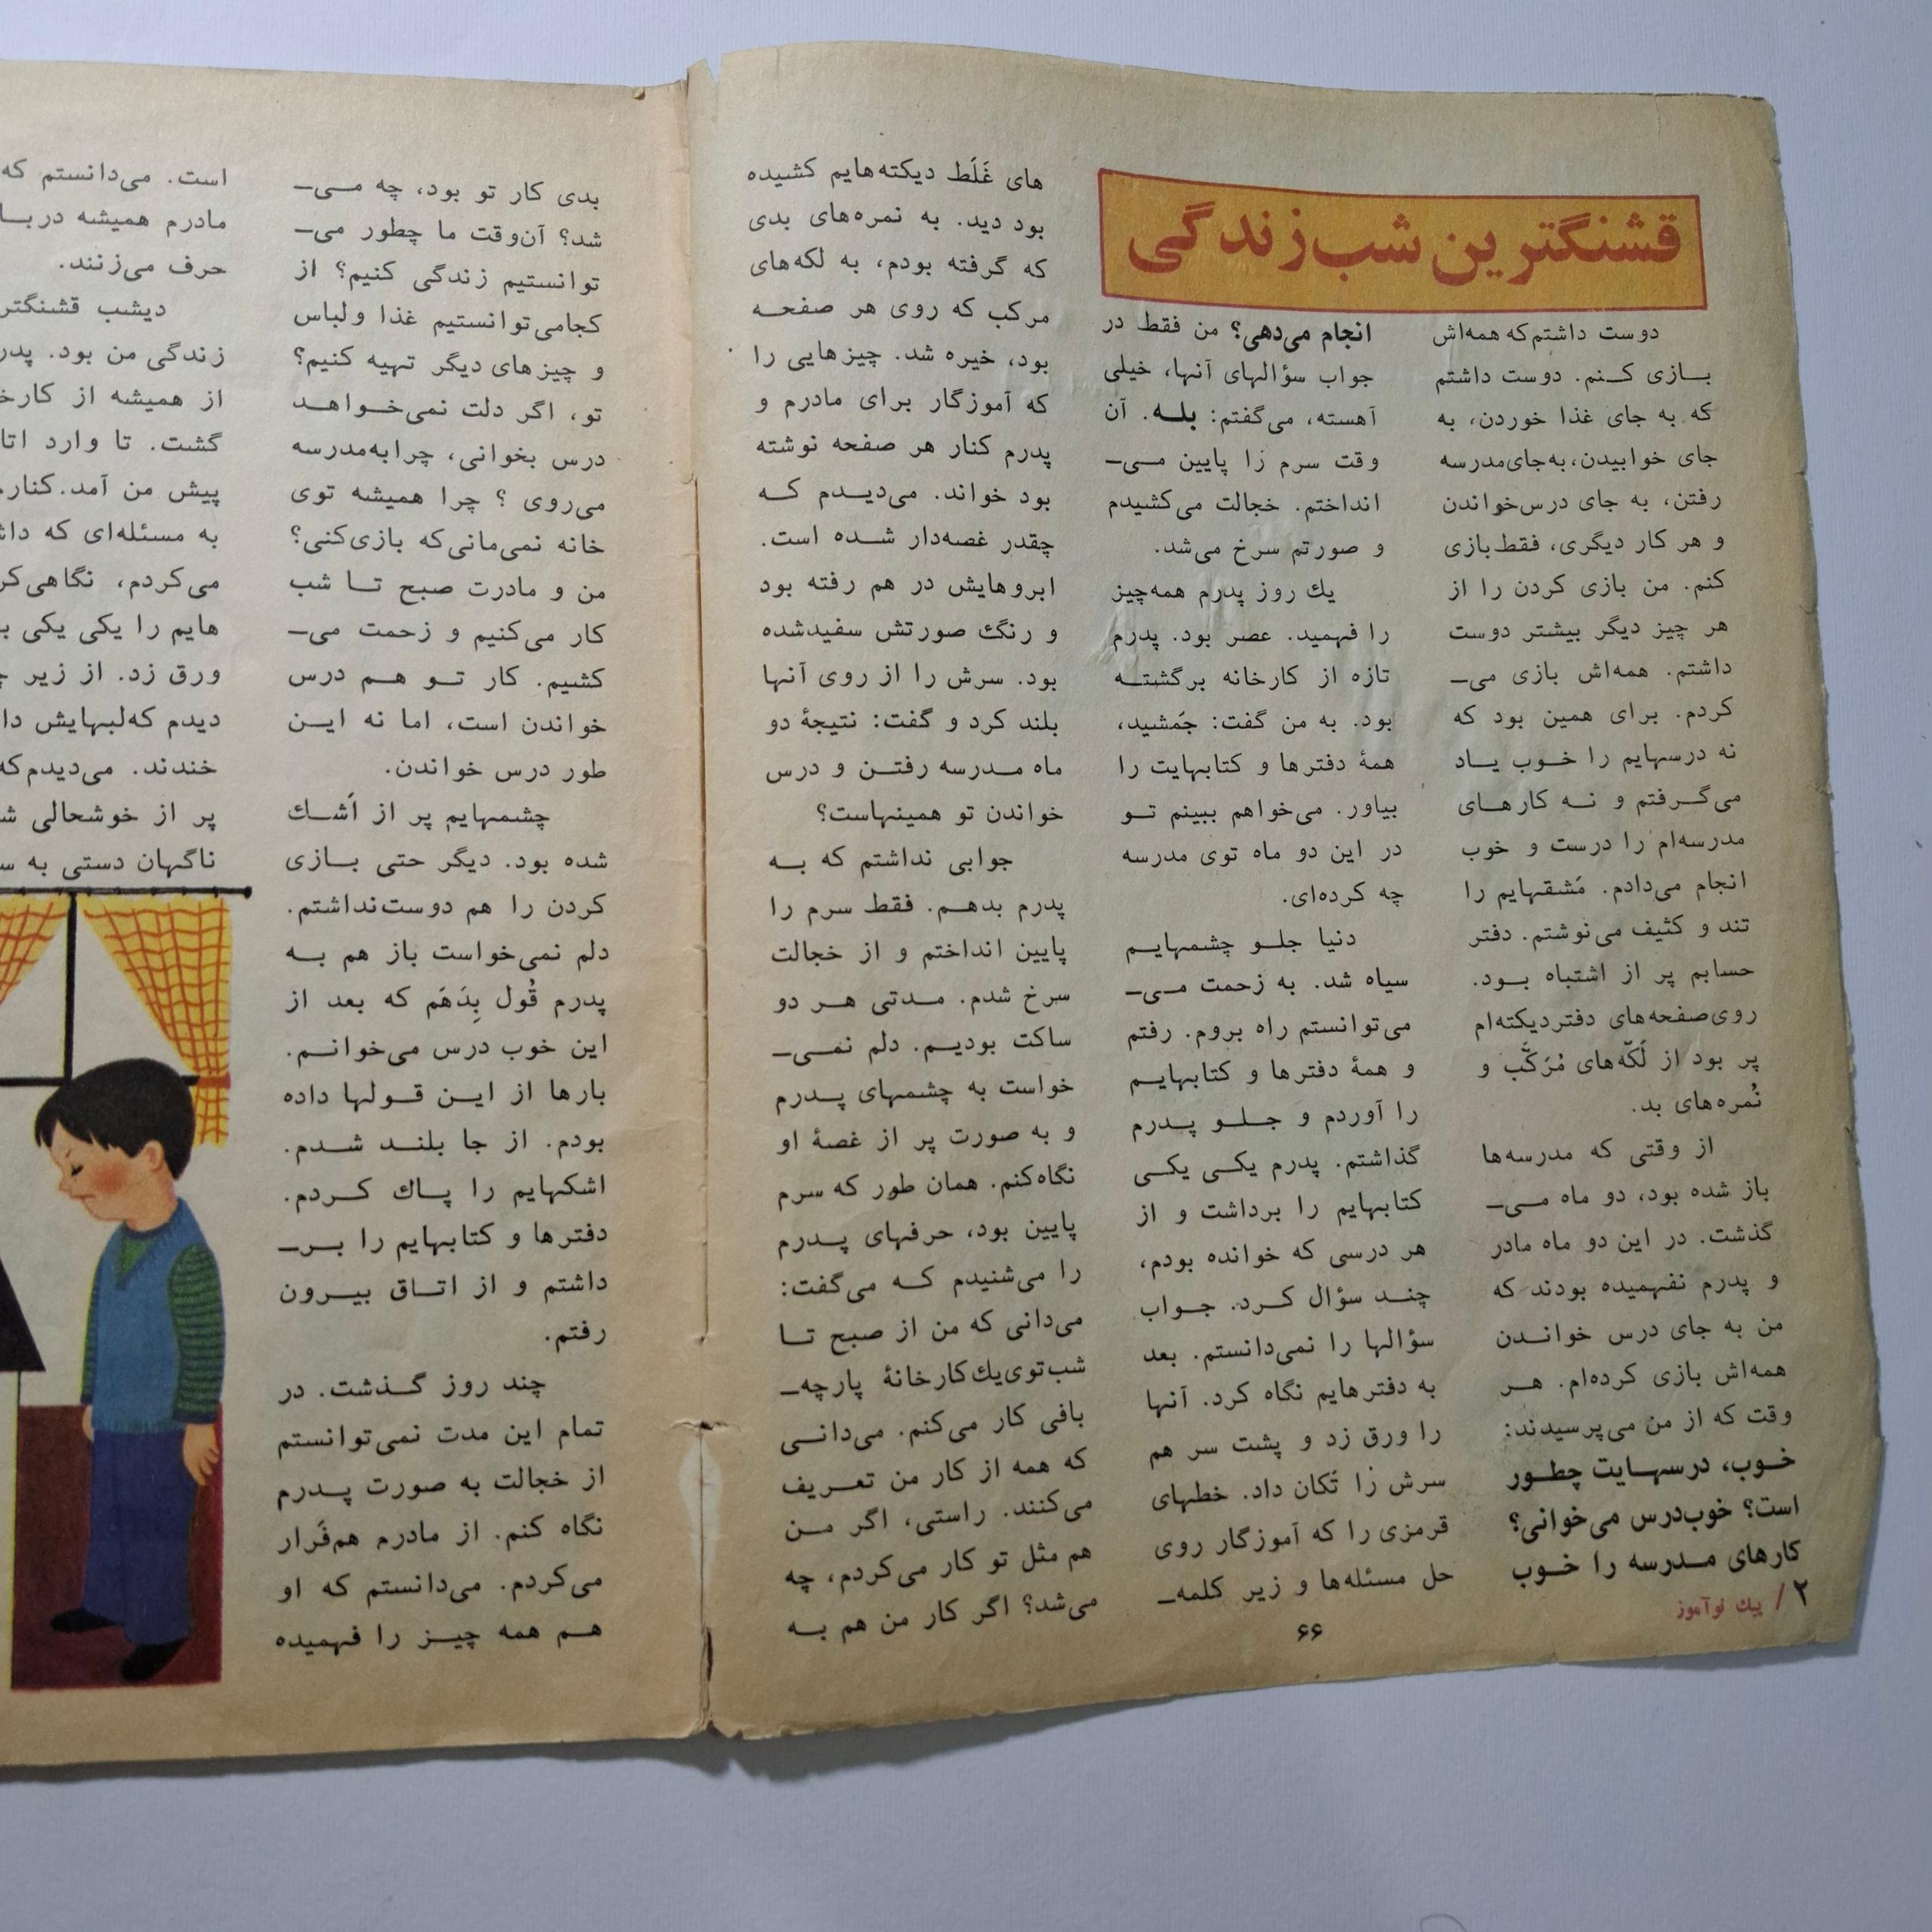 قشنگترین شب زندگی
دوست داشتم که همه‌اش
بــازی کــنم. دوست داشتم
که به جای غذا خوردن، به
جای خوابیدن، به‌جای‌مدرسه
رفتن، به جای درس‌خواندن
و هر کار دیگری، فقط بازی
کنم. من بازی کردن را از
هر چیز دیگر بیشتر دوست
داشتم. همه‌اش بازی می‌ـ
کردم. برای همین بود که
نه درسهایم را خــوب یــاد
می‌گــرفتم و نــه کارهــای
مدرسه‌ام را درست و خوب
انجام می‌دادم. مَشقهایم را
تند و کثیف می‌نوشتم. دفتر
حسابم پر از اشتباه بــود.
روی‌صفحه‌های دفتردیکته‌ام
پر بود از لَکّه‌های مُرَکَّب و
نُمره‌های بد.
از وقتی که مدرسه‌ها
باز شده بود، دو ماه مــی‌ـ
گذشت. در این دو ماه مادر
و پدرم نفهمیده بودند که
من به جای درس خوانــدن
همه‌اش بازی کرده‌ام. هــر
وقت که از من می‌پرسیدند:
خــوب، درسهــایت چطــور
است؟ خوب‌درس می‌خوانی؟
کارهای مــدرسه را خــوب
انجام می‌دهی؟ من فقط در
جواب سؤالهای آنها، خیلی
آهسته، می‌گفتم: بلــه. آن
وقت سرم را پایین مــی‌ـ
انداختم. خجالت می‌کشیدم
و صورتم سرخ می‌شد.
یك روز پدرم همه‌چیز
را فهمید. عصر بود. پدرم
تازه از کارخانه برگشتــه
بود. به من گفت: جَمشید،
همهٔ دفترها و کتابهایت را
بیاور. می‌خواهم ببینم تــو
در این دو ماه توی مدرسه
چه کرده‌ای.
دنیا جلــو چشمهایــم
سیاه شد. به زحمت مــی‌ـ
می‌توانستم راه بروم. رفتم
و همهٔ دفترها و کتابهایــم
را آوردم و جــلــو پــدرم
گذاشتم. پدرم یکــی یکــی
کتابهایم را برداشت و از
هر درسی که خوانده بودم،
چنــد سؤال کــرد. جــواب
سؤالها را نمی‌دانستم. بعد
به دفترهایم نگاه کرد. آنها
را ورق زد و پشت سر هم
سرش را تَکان داد. خطهای
قرمزی را که آموزگار روی
حل مسئله‌ها و زیر کلمه‌ـ
های غَلَط دیکته‌هایم کشیده
بود دید. به نمره‌های بدی
که گرفته بودم، به لکه‌های
مرکب که روی هر صفحــه
بود، خیره شد. چیزهایی را
که آموزگار برای مادرم و
پدرم کنار هر صفحه نوشته
بود خواند. می‌دیــدم کــه
چقدر غصه‌دار شــده است.
ابروهایش در هم رفته بود
و رنگ صورتش سفیدشده
بود. سرش را از روی آنها
بلند کرد و گفت: نتیجهٔ دو
ماه مــدرسه رفتــن و درس
خواندن تو همینهاست؟
جوابی نداشتم که بــه
پدرم بدهــم. فقط سرم را
پایین انداختم و از خجالت
سرخ شدم. مــدتی هــر دو
ساکت بودیــم. دلم نمــی‌ـ
خواست به چشمهای پــدرم
و به صورت پر از غصهٔ او
نگاه‌کنم. همان طور که سرم
پایین بود، حرفهای پــدرم
را می‌شنیدم کــه می‌گفت:
می‌دانی که من از صبح تــا
شب‌توی‌یك‌کارخانهٔ پارچه‌ـ
بافی کار می‌کنم. می‌دانــی
که همه از کار من تعــریف
می‌کنند. راستی، اگر مــن
هم مثل تو کار می‌کردم، چه
می‌شد؟ اگر کار من هم بــه
۲ / پیك نوآموز
۶۶
بدی کار تو بود، چه مــی‌ـ
شد؟ آن‌وقت ما چطور می‌ـ
توانستیم زندگی کنیم؟ از
کجامی‌توانستیم غذا ولباس
و چیزهای دیگر تهیه کنیم؟
تو، اگر دلت نمی‌خــواهــد
درس بخوانی، چرابه‌مدرسه
می‌روی ؟ چرا همیشه توی
خانه نمی‌مانی‌که بازی‌کنی؟
من و مادرت صبح تــا شب
کار می‌کنیم و زحمت می‌ـ
کشیم. کار تــو هــم درس
خواندن است، اما نه ایــن
طور درس خواندن.
چشمهایم پر از اَشــك
شده بود. دیگر حتی بــازی
کردن را هم دوست‌نداشتم.
دلم نمی‌خواست باز هم بــه
پدرم قُول بِدَهَم که بعد از
این خوب درس می‌خوانــم.
بارها از ایــن قــولها داده
بودم. از جا بلنــد شــدم.
اشکهایم را پــاك کــردم.
دفترها و کتابهایم را بــرـ
داشتم و از اتــاق بیــرون
رفتم.
چند روز گــذشت. در
تمام این مدت نمی‌توانستم
از خجالت به صورت پــدرم
نگاه کنم. از مادرم هم‌فَرار
می‌کردم. می‌دانستم که او
هــم همه چیــز را فهمیده
است. می‌دانستم که
مادرم همیشه دربــا
حرف می‌زنند.
دیشب قشنگتر
زندگی من بود. پدر
از همیشه از کارخ
گشت. تا وارد اتا
پیش من آمد. کنار
به مسئله‌ای که داش
می‌کردم، نگاهی‌کر
هایم را یکی یکی بـ
ورق زد. از زیر چ
دیدم که‌لبهایش دا
خندند. می‌دیدم‌که
پر از خوشحالی ش
ناگهان دستی به س